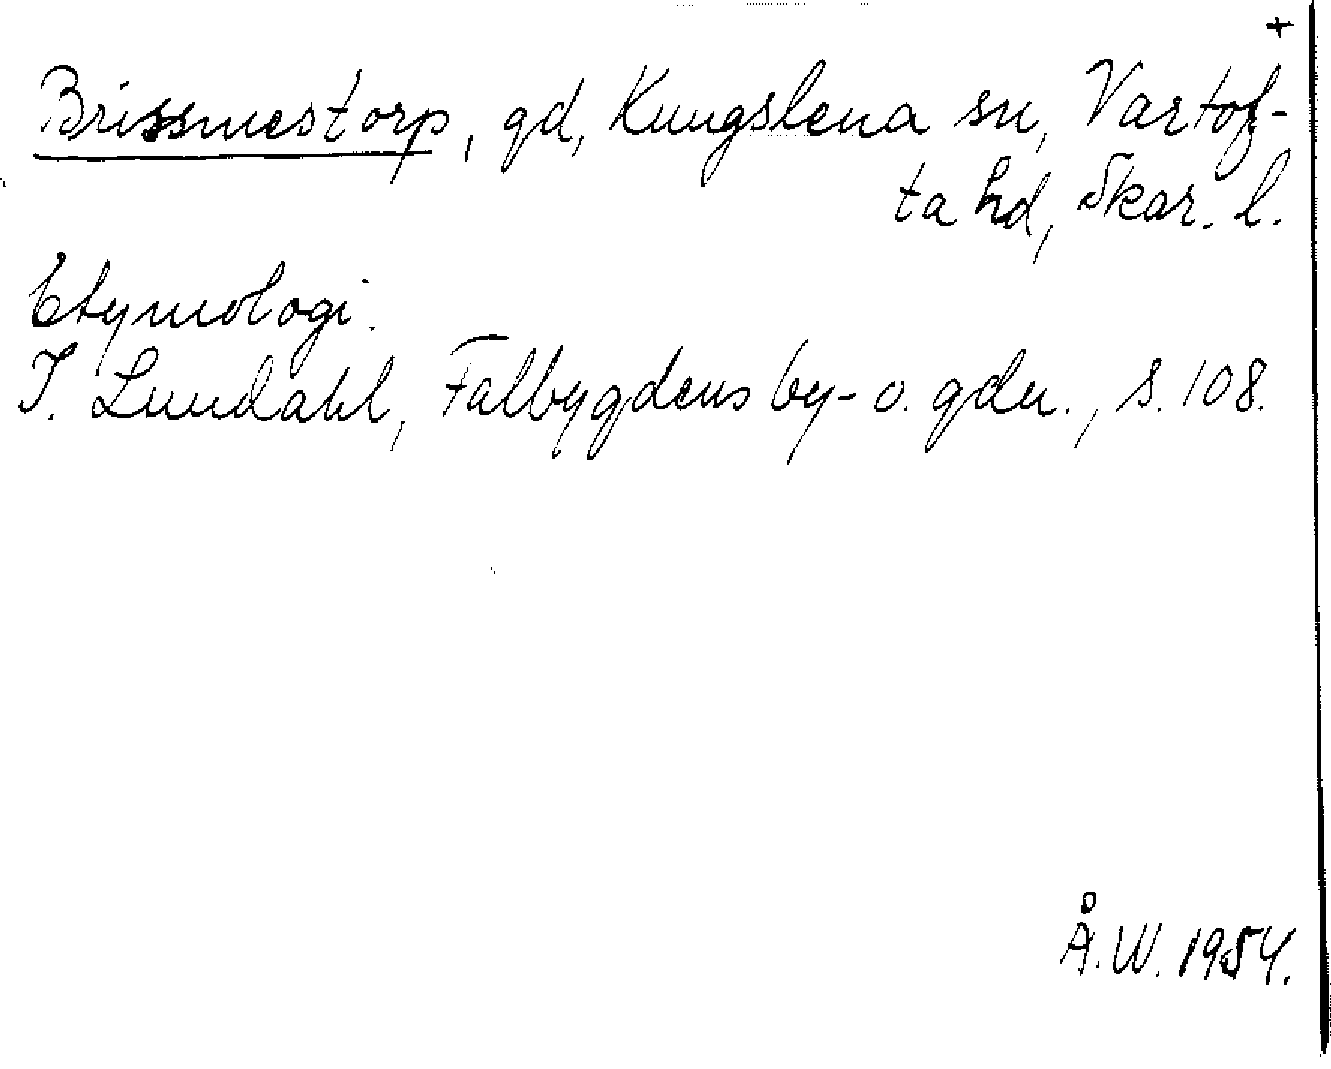 +
Brissmestorp, gd, Kungslena sn, Vartof-
ta hd, Skar. l.
Etymologi.
I. Lundahl, Falbygdens by- o. gdn., s. 108.
Å.W. 1954.